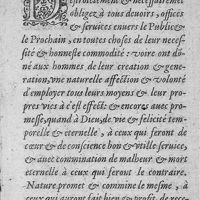 estroictement & necessairemẽt
obligez à tous deuoirs, offices
& seruices enuers le Publicq &
le Prochain, en toutes choses de leur necessi-
té & honneste commodité: voire ont don-
né aux hommes de leur creation & gene-
ration, vne naturelle affectiõ & volonté
d'employer tous leurs moyens & leur pro-
pres vies à c'est effect: & encores auec pro-
messe, quand à Dieu, de vie & felicité tem-
porelle & eternelle, à ceux qui seront de
cœur & de conscience bon & vtille seruice,
& auec commination de malheur & mort
eternelle à ceux qui feront le contraire.
Nature promet & commine le mesme, à
ceux qui auront fait bien & profit, de rece-